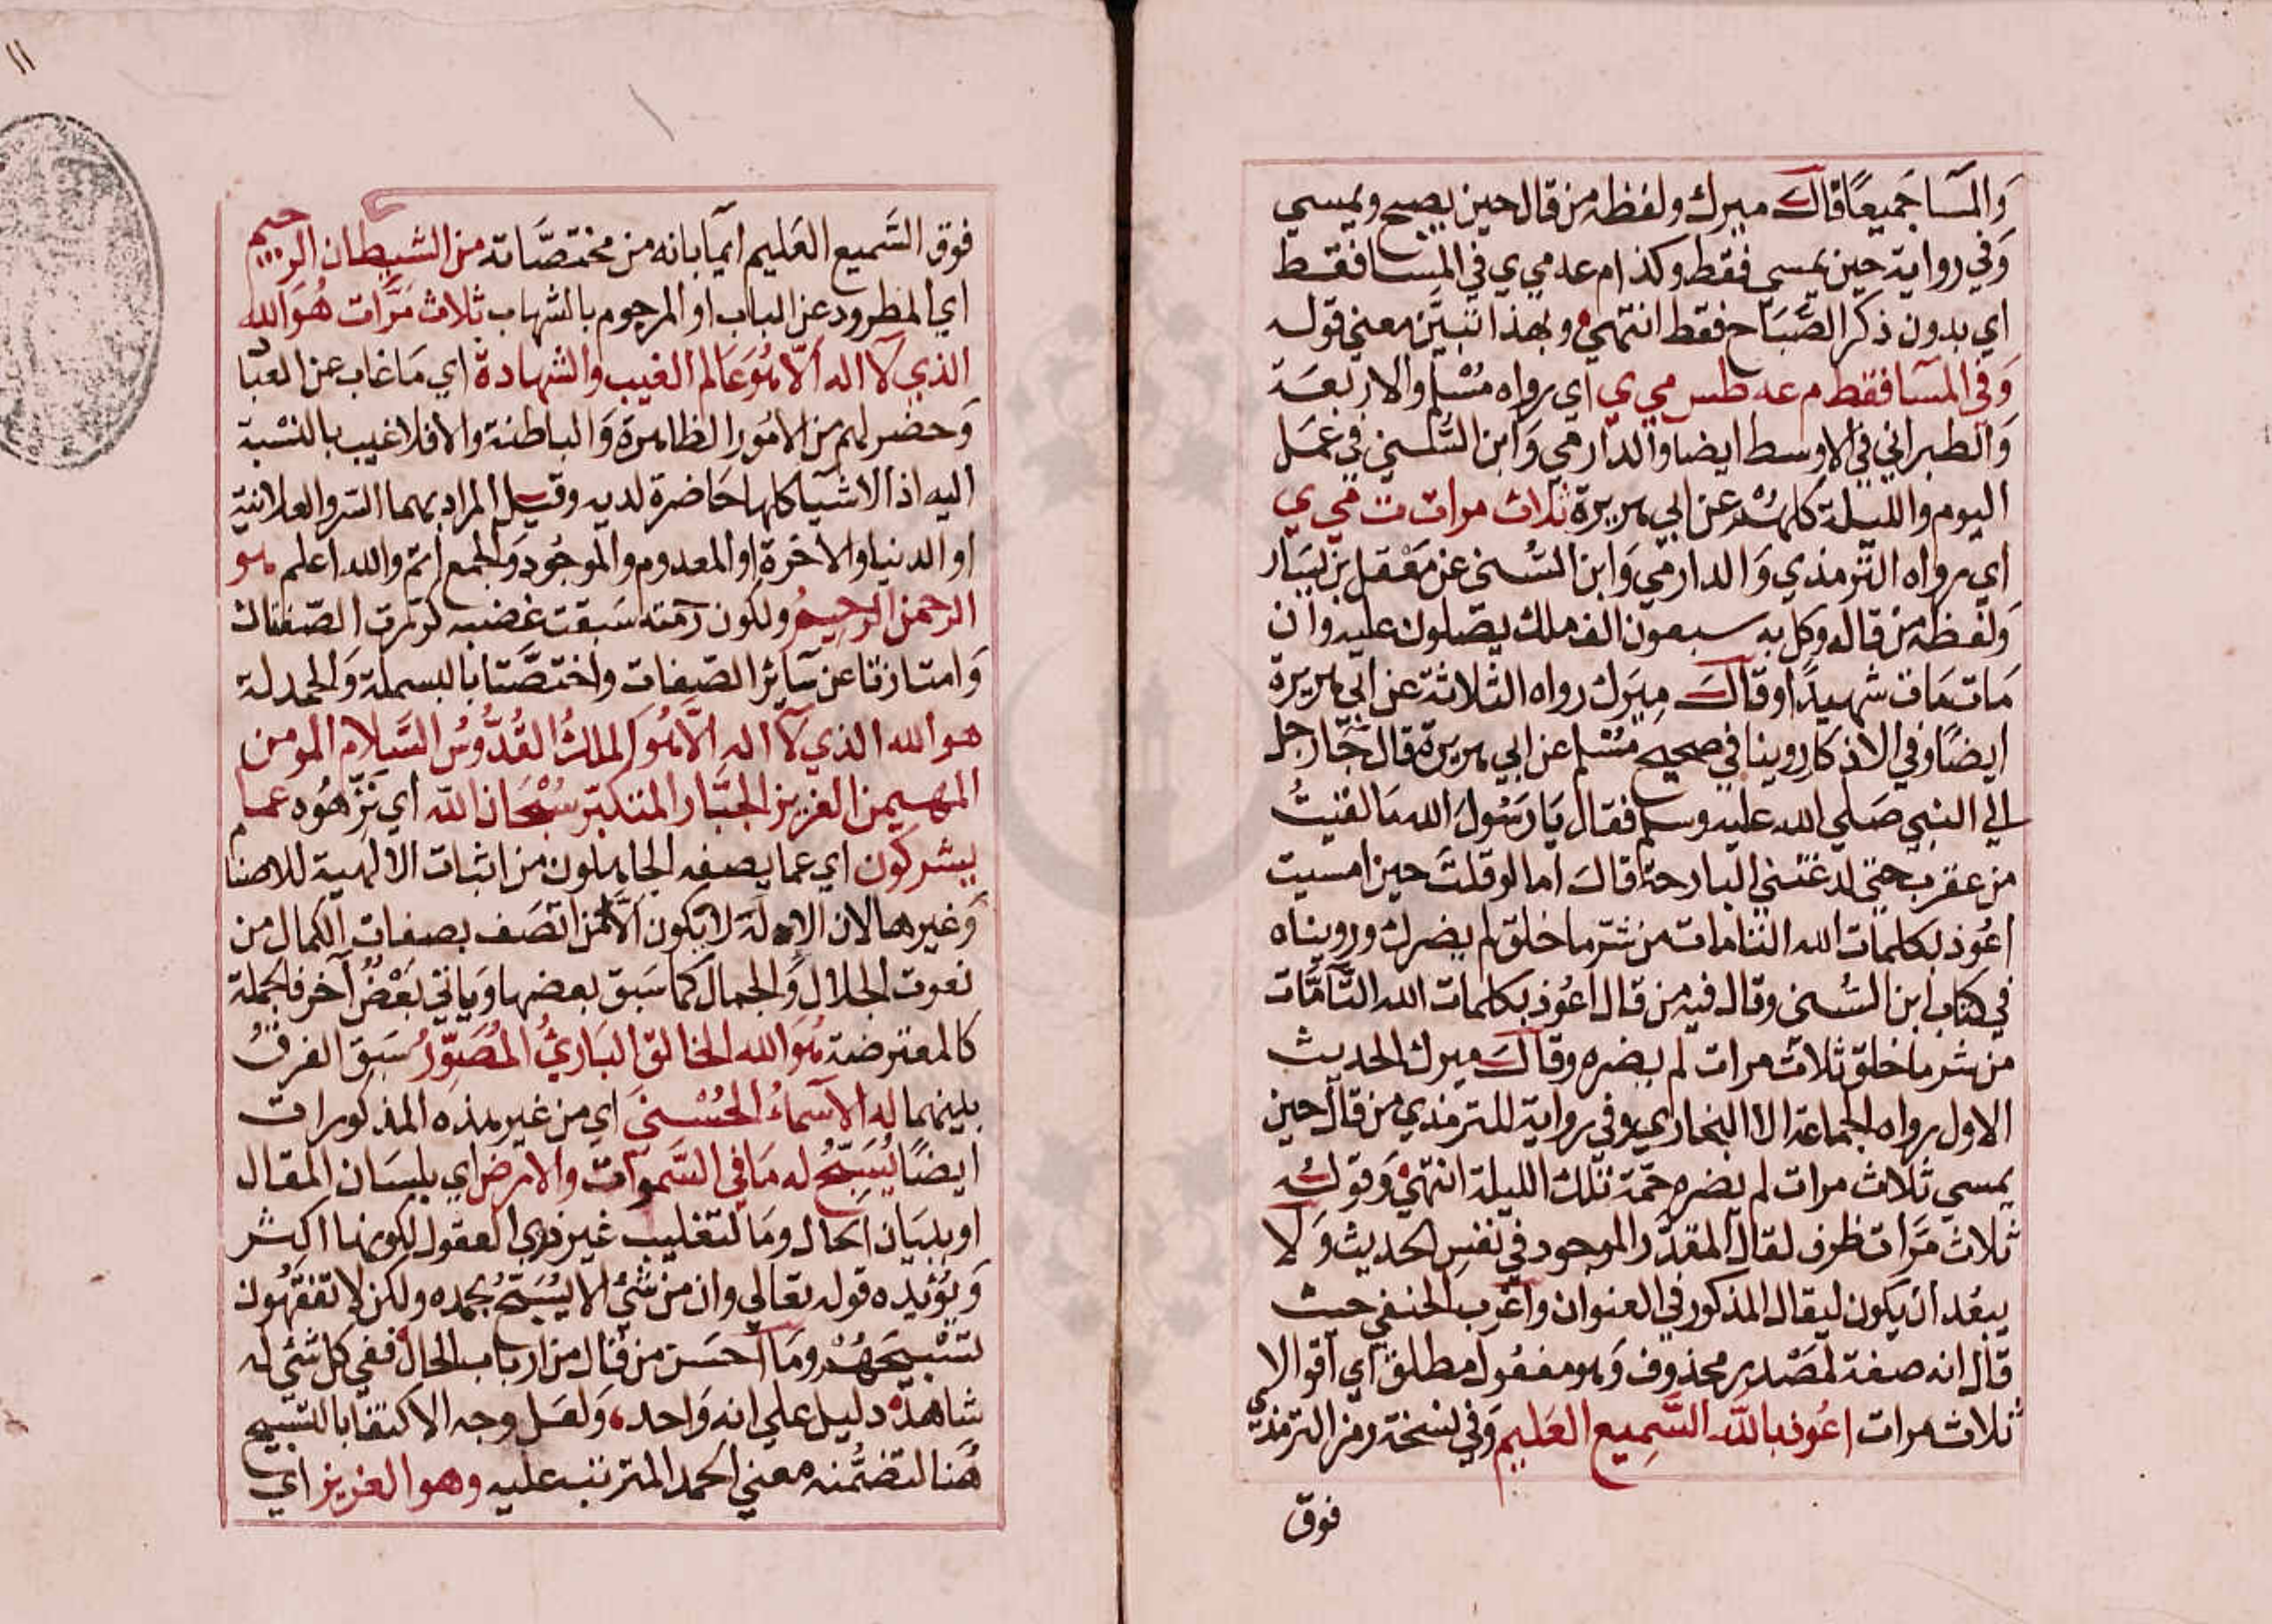 وَالمسَاجَميعًا قالَ ميرك ولفظه من قال حين يصبح ويمسي
وَفي رواية حين يمسي فقط وكذا م عه مي ي في المسا فقط
اي بدون ذكر الصَّبَاح فقط انتهي وبهذا تبيَّن معني قوله
وَفي المسَا فقط م عه طس مي ي اي رواه مُسْلم والاربعَة
وَالطبراني في الاوسط ايضا والدارمي وَابن السُّني في عمَل
اليوم والليلة كلهُمْ عن ابي هريرة ثلاث مرات ت مي ي
اي رواه الترمذي وَالدارمي وَابن السُّني عن مَعْقل بن يسَار
وَلفظه من قاله وكل به سبعون الف ملك يصَلون عليه وان
مَات مَات شهيدًا وقالَ ميَرك رواه الثلاثة عن ابي هريرة
ايضًا وفي الاذكار روينا في صحيح مُسْلم عن ابي هريرة قال جَا رجل
الي النبي صَلي الله عليه وسلم فقال يَا رَسُولَ الله مَا لقيتُ
من عقرب حتي لدغتني البارحة قالَ اما لو قلتَ حين امسيت
اعُوذ بكلمات الله التامات من شر ما خلق لم يضرك وروينَاه
في كتاب ابن السُّني وقال فيه من قال اعُوذ بكلمات الله التَّامَّات
من شر ما خلق ثلاث مرات لم يضره وقالَ ميرك الحديث
الاول رواه الجماعة الا البخاري وفي رواية للترمذي من قال حين
يمسي ثلاث مرات لم يضره حمَة تلك الليلة انتهي وَقولُه
ثلاث مَرَّات ظرف لقال المقدَّر الموجود في نفس الحديث وَلا
يبعُد ان يكون ليقال المذكور في العنوان واغرب الحنفي حيث
قال انه صفة لمصْدر محذوف وَهو مفعُول مطلق اي اقوالا
ثلاث مرات اعُوذ بالله السَّمِيع العَليم وَفي نسخة رمز الترمذي
فوق
١١
فوق السَّميع العَليم ايمآ بانه من مختصَّاته من الشيطان الرجيم
اي المطرود عن الباب او المرجوم بالشهاب ثلاث مَرَّات هُوَ الله
الذي لا اله الا هُوَ عَالم الغيب والشهادة اي مَا غاب عن العبَاد
وَحضر لهم من الامُور الظاهرة وَالباطنة والا فلا غيب بالنسْبة
اليه اذ الاشيَا كلها حَاضرة لديه وقيل المراد بهما السر والعلانية
او الدنيا والاخرة او المعدوم والموجُود وَالجمع اتم والله اعلم هو
الرحمن الرحيم ولكون رحمته سَبقت غضبه كررت الصّفتان
وَامتازتا عن سَائر الصّفات واختصَّتا بالبسملة وَالحمدلة
هو الله الذي لا اله الا هُوَ الملكُ القُدُّوسُ السَّلام المومن
المهيمن العزيز الجبَّار المتكبّر سُبْحَان الله اي نزّهُوه عمَا
يشركون اي عما يصفه الجاهلون من اثبات الالهية للاصنام
وَغيرها لان الاله لا يكون الَّا من اتصَف بصفات الكمال من
نعوت الجلال وَالجمال كما سَبق بعضها وَياتي بَعْضٌ آخر فالجملة
كالمعترضة هُوَ الله الخالق البَاريُ المُصَوّرُ سَبقَ الفرقُ
بينهما له الاسمآءُ الحُسْنيَ اي من غير هذه المذكورات
ايضًا يُسَبّحُ له مَا في السَّموَات والارض اي بلسَان المقال
او ببيَان الحال ومَا لتغليب غير ذوي العقول لكونها اكثر
وَيُؤيده قوله تعالي وان من شيُ الا يُسَبّحُ بحمده ولكن لا تفقهُون
تسْبيحَهُمْ ومَا احسَن من قال من ارباب الحال ففي كل شئ له
شاهدٌ دليل علي انه وَاحد وَلعَل وجه الاكتفا بالتسبيح
هُنا لتضَمُّنه معني الحمد المترتب عليه وهو العزيز اي